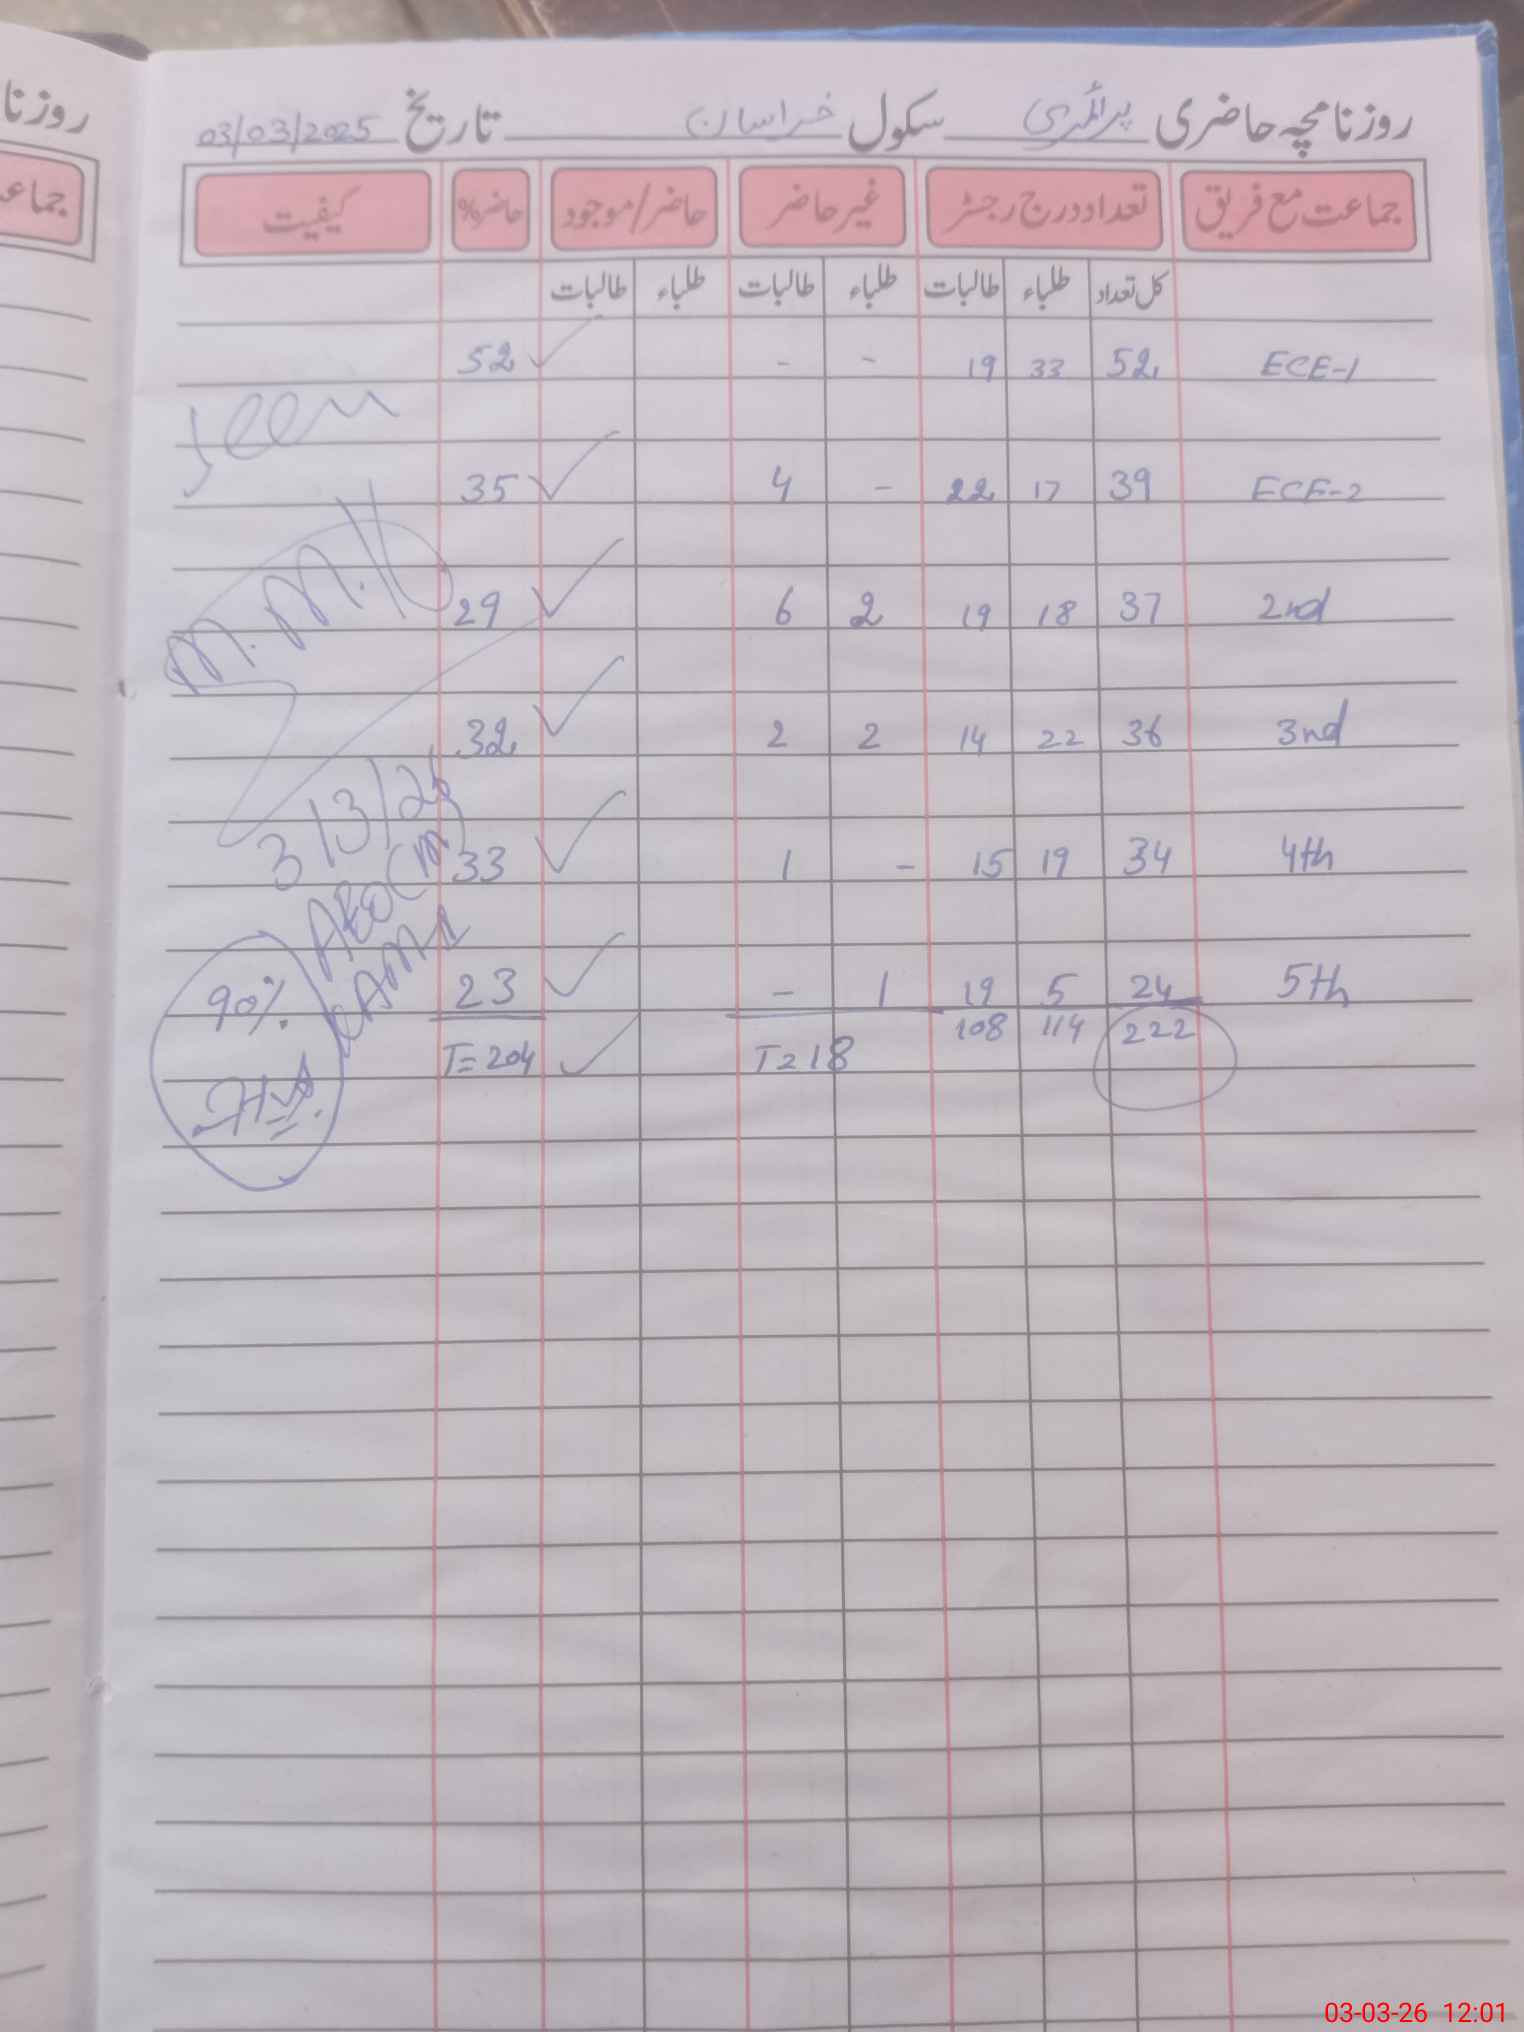 روزنامچہ حاضری پرائمری سکول خراسان تاریخ 03/03/2025
جماعت مع فریق تعداد درج رجسٹر غیر حاضر حاضر/موجود حاضر% کیفیت
کل تعداد طلباء طالبات طلباء طالبات طلباء طالبات
ECE-1 52 33 19 - - 52
Seen
ECE-2 39 17 22 - 4 35
2nd 37 18 19 2 6 29
3nd 36 22 14 2 2 32
3/3/26
4th 34 19 15 - 1 33
AEO(M)
5th 24 5 19 1 - 23
90%
222 114 108
T=18 T=204
روزنا
جماعـ
03-03-26 12:01